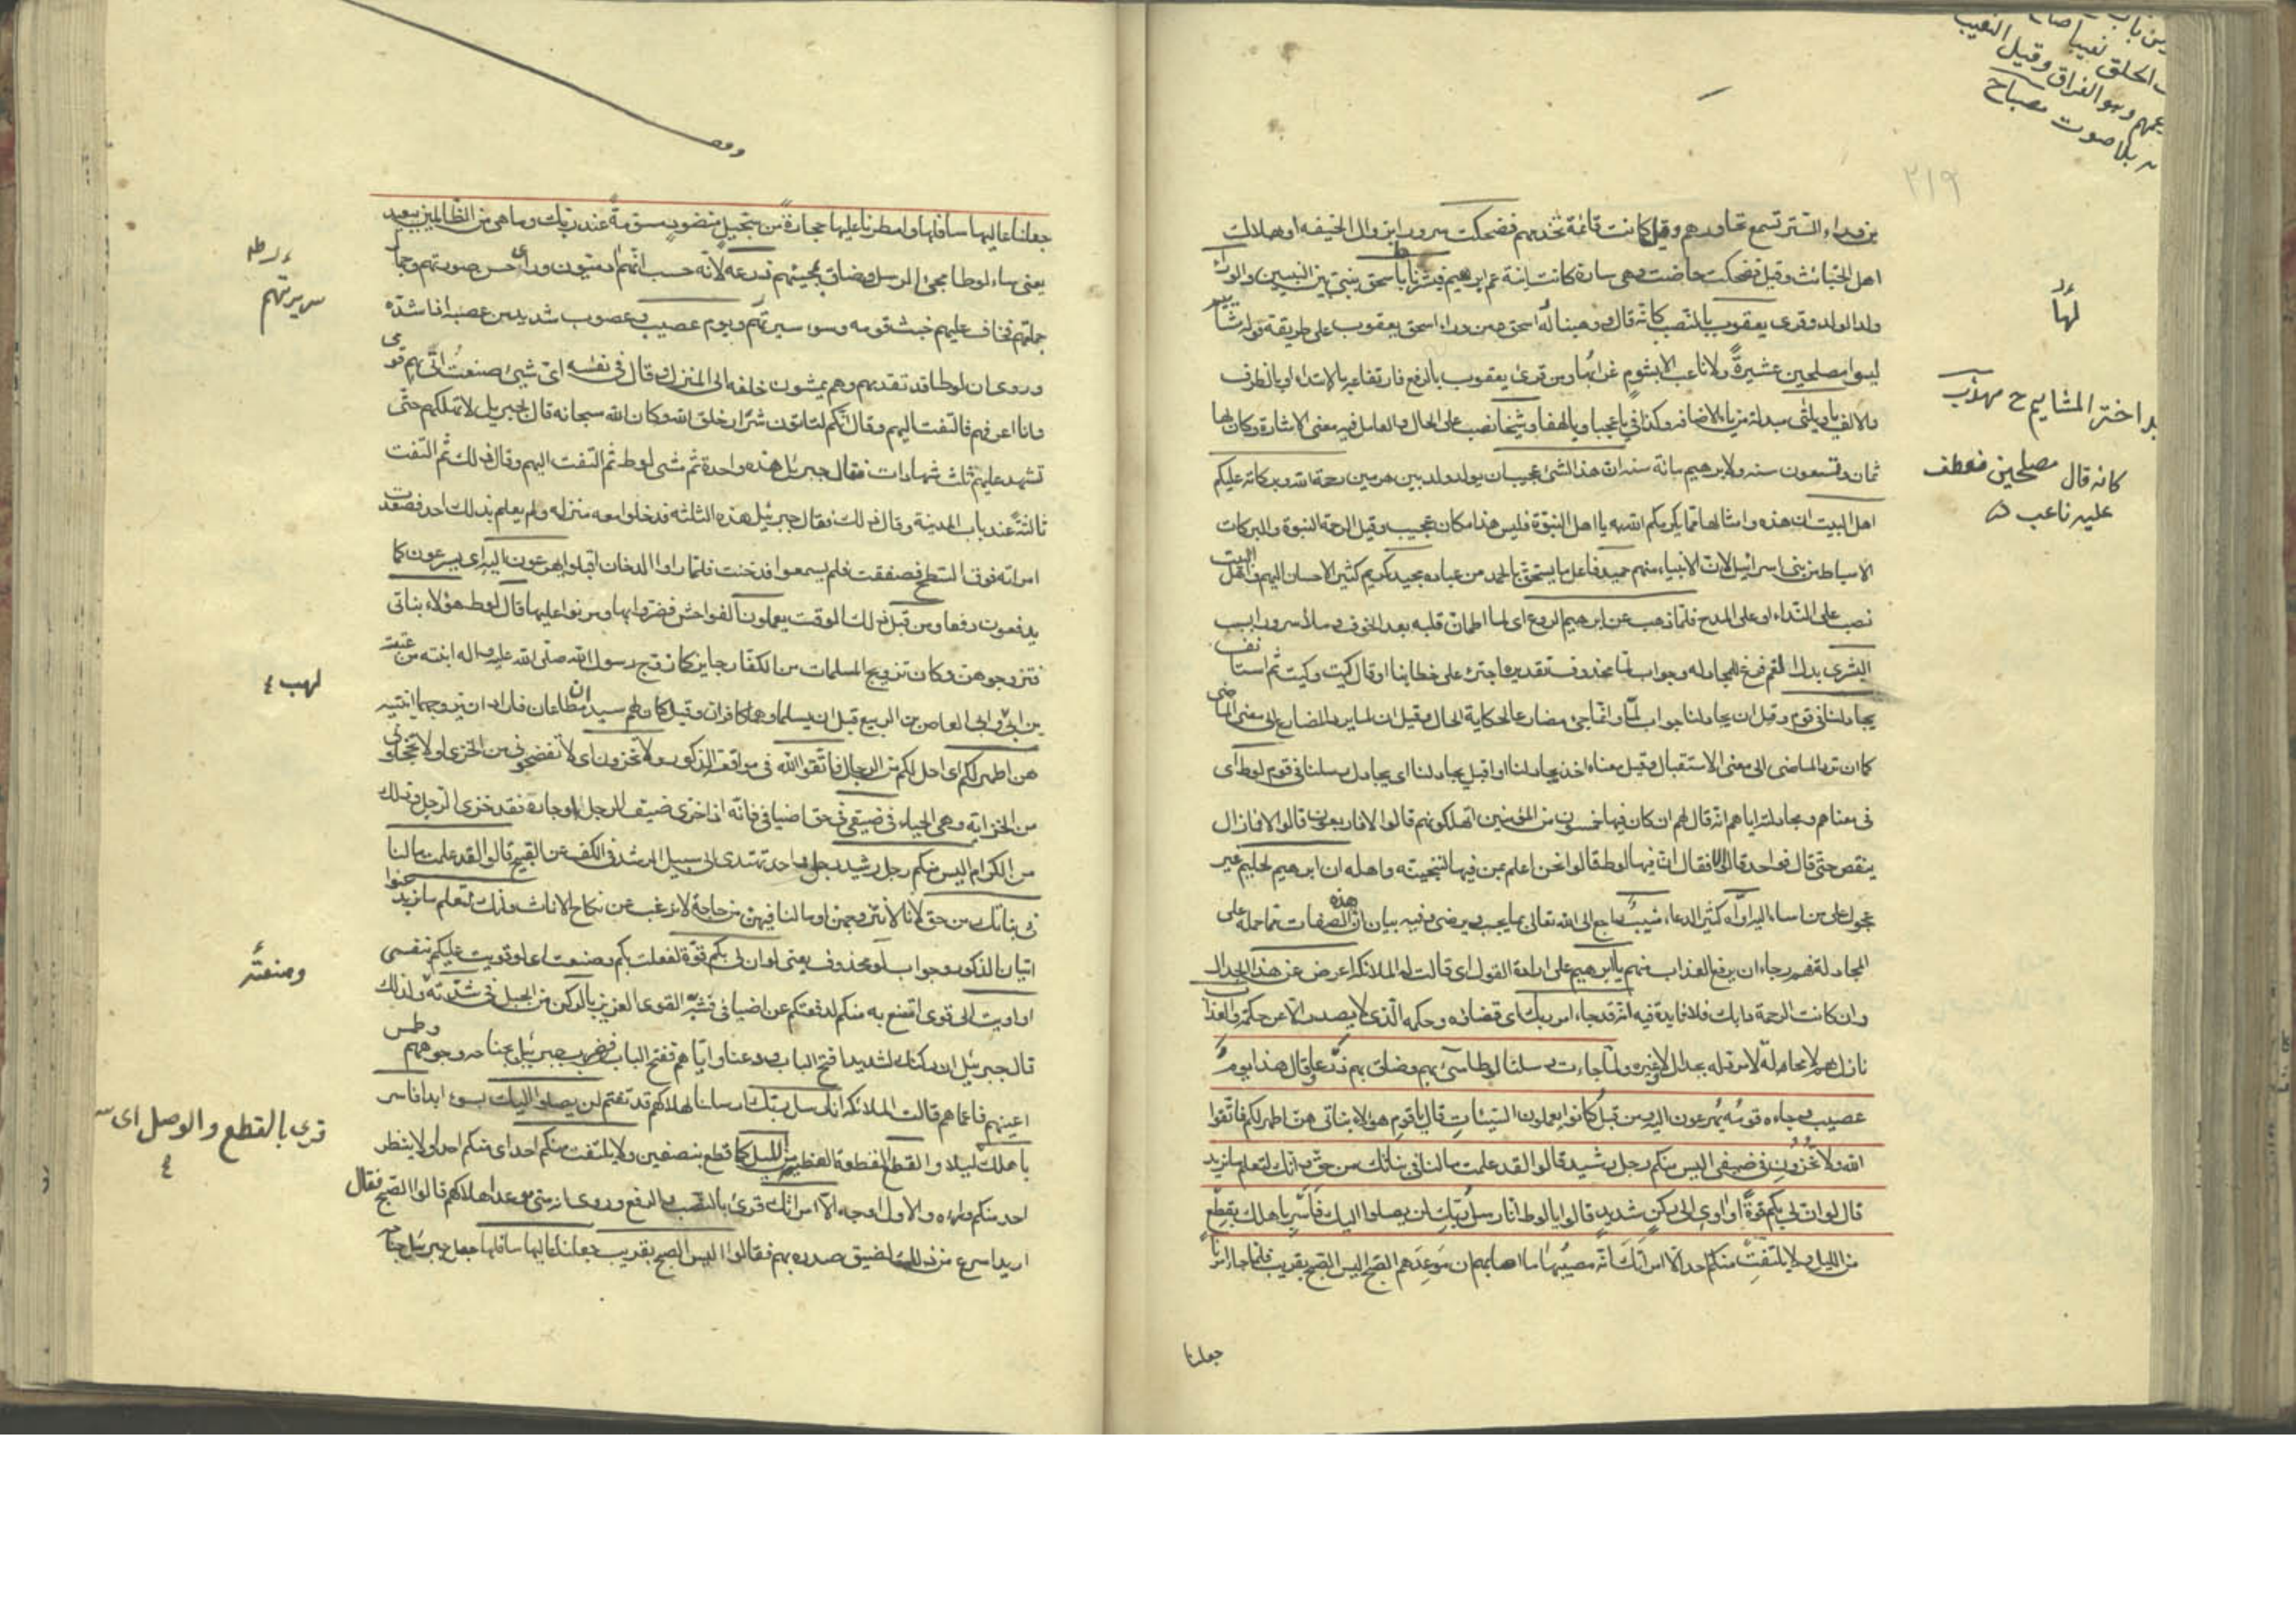 من وراء الستر تسمع تحاورهم وقيل كانت قائمة تخدمهم فضحكت سرورا بزوال الخيفه او هلاك
اهل الخبائث وقيل فضحكت حاضت وهى سارة كانت ابنة عم ابرهيم فبشرناها باسحق بنبى بين النبيين والوراء
ولد الولد وقرى يعقوب بالنصب كانه قال ووهبنا له اسحق ومن وراء اسحق يعقوب على طريقة قوله مشائيم
ليسوا مصلحين عشيرة ولا ناعب الا بشوم غرابها ومن قرى يعقوب بالرفع فارتفاعه بالابتداء او بالظرف
والالف يا ويلتى مبدلة من ياء الاضافه وكذا فى يا عجبا ويا لهفا وشيخا نصب على الحال والعامل فيه معنى الاشارة وكان لها
ثمان وتسعون سنه ولابرهيم مائة سنه ان هذا لشئ عجيب ان يولد ولد بين هرمين رحمة الله وبركاته عليكم
اهل البيت ان هذه وامثالها مما يكرمكم الله به يا اهل النبوة فليس هذا مكان عجيب وقيل الرحمة النبوة والبركات
الاسباط من بنى اسرائيل لان الانبياء منهم حميد فاعل ما يستحق به الحمد من عباده مجيد كريم كثير الاحسان اليهم واهل البيت
نصب على النداء او على المدح فلما ذهب عن ابرهيم الروع اى لما اطمان قلبه بعد الخوف وملأ سرورا بسبب
البشرى بدل الغم فرغ للمجادله وجواب لما محذوف تقديره اجترئ على خطابنا او قال كيت وكيت ثم استانف
يجادلنا فى قوم وقيل ان يجادلنا جواب لما وانما جئ مضارعا لحكاية الحال وقيل ان لما يرد المضارع الى معنى الماضى
كما ان ترد الماضى الى معنى الاستقبال وقيل معناه اخذ يجادلنا او اقبل يجادلنا اى يجادل رسلنا فى قوم لوط اى
فى معناهم ومجادلته اياهم انه قال لهم ان كان فيها خمسون من المؤمنين اتهلكونهم قالوا لا قال فاربعون قالوا لا فما زال
ينقص حتى قال فواحد قالوا لا فقال ان فيها لوطا قالوا نحن اعلم بمن فيها لننجينه واهله ان ابرهيم لحليم غير
عجول على من اساء اليه اواه كثير الدعاء منيب راجع الى الله تعالى بما يحب ويرضى وفيه بيان ان هذه الصفات مما حمله على
المجادلة فيهم رجاء ان يرفع العذاب عنهم يا ابرهيم على ارادة القول اى قالت له الملائكة اعرض عن هذا الجدال
وان كانت الرحمة دابك فلا فايدة فيه انه قد جاء امر ربك اى قضاؤه وحكمه الذى لا يصدر الا عن حكمة والعذاب
نازل بهم لا محالة لا مرد له بجدال ولا غيره ولما جاءت رسلنا لوطا سئ بهم وضاق بهم ذرعا وقال هذا يوم
عصيب وجاءه قومه يهرعون اليه ومن قبل كانوا يعملون السيئات قال يا قوم هؤلاء بناتى هن اطهر لكم فاتقوا
الله ولا تخزون فى ضيفى اليس منكم رجل رشيد قالوا لقد علمت ما لنا فى بناتك من حق وانك لتعلم ما نريد
قال لو ان لى بكم قوة او آوى الى ركن شديد قالوا يا لوط انا رسل ربك لن يصلوا اليك فاسر باهلك بقطع
من الليل ولا يلتفت منكم احد الا امراتك انه مصيبها ما اصابهم ان موعدهم الصبح اليس الصبح بقريب فلما جاء امرنا
جعلنا
٢١٩
الخلق نعيبا
وهو الفراق وقيل النعيب
بلا صوت مصباح
لها
اختر المشائيم ح مهذب
كانه قال مصلحين فعطف
عليه ناعب
جعلنا عاليها سافلها وامطرنا عليها حجارة من سجيل منضود مسومة عند ربك وما هى من الظالمين ببعيد
يعنى ساء لوطا مجئ الرسل وضاق بمجيئهم ذرعه لانه حسب انهم ادميون وراى حسن صورتهم وجمال
جملتهم فخاف عليهم خبث قومه وسوء سيرتهم ويوم عصيب وعصوب شديد من عصبه اذا شده
وروى ان لوطا قد تقدمهم وهم يمشون خلفه الى المنزل وقال فى نفسه اى شئ صنعت اتى بهم قومى
وانا اعرفهم فالتفت اليهم وقال انكم لتاتون شرار خلق الله وكان الله سبحانه قال لجبريل لا تهلكهم حتى
تشهد عليهم ثلث شهادات فقال جبرئيل هذه واحدة ثم مشى لوط ثم التفت اليهم وقال ذلك ثم التفت
ثالثة عند باب المدينة وقال ذلك فقال جبرئيل هذه الثلثه فدخلوا معه منزله ولم يعلم بذلك احد فصعدت
امراته فوق السطح فصفقت فلم يسمعوا فدخنت فلما راوا الدخان اقبلوا يهرعون اليه اى يسرعون كما
يدفعون دفعا ومن قبل ذلك الوقت يعملون الفواحش فضروا بها ومرنوا عليها قال لوط هؤلاء بناتى
فتزوجوهن وكان تزويج المسلمات من الكفار جايز كما زوج رسول الله صلى الله عليه واله ابنته من عتبة
بن ابى وابا العاص بن الربيع قبل ان يسلما وهما كافران وقيل كان لهم سيدان مطاعان فاراد ان يزوجهما ابنتيه
هن اطهر لكم اى احل لكم من الرجال فاتقوا الله فى مواقعة الذكور ولا تخزون اى لا تفضحونى من الخزى او لا تخجلونى
من الخزاية وهى الحياء فى ضيفى فى حق اضيافى فانه اذا خزى ضيف الرجل او جاره فقد خزى الرجل وذلك
من الكرام اليس منكم رجل رشيد رجل واحد يهتدى الى سبيل الرشد فى الكف عن القبيح قالوا لقد علمت ما لنا
فى بناتك من حق لانا لا نتزوجهن او ما لنا فيهن من حاجة لانا نرغب عن نكاح الاناث وانك لتعلم ما نريد عنوا
اتيان الذكور وجواب لو محذوف يعنى لو ان لى بكم قوة لفعلت بكم وصنعت اى لو قويت عليكم بنفسى
او اويت الى قوى امتنع به منكم لدفعتكم عن اضيافى فشبه القوى العزيز بالركن من الجبل فى شدته ولذلك
قال جبرئيل ان ركنك لشديد افتح الباب ودعنا واياهم ففتح الباب فضرب جبرئيل بجناحه وجوههم وطمس
اعينهم فاعماهم قالت الملائكة انا رسل ربك ارسلنا لهلاكهم فلا تغتم لن يصلوا اليك بسوء ابدا فاسر
باهلك ليلا والقطع القطعة العظيمة من الليل كما قطع بنصفين ولا يلتفت منكم احد اى منكم احد او لا ينظر
احد منكم وراءه والاول اوجه الا امراتك قرئ بالنصب والرفع وروى انه متى موعد اهلاكهم قالوا الصبح فقال
اريد اسرع من ذلك لضيق صدره بهم فقالوا اليس الصبح بقريب جعلنا عاليها سافلها جعل جبرئيل جناحه
سريرتهم
لهب
ومنعته
قرئ بالقطع والوصل اى